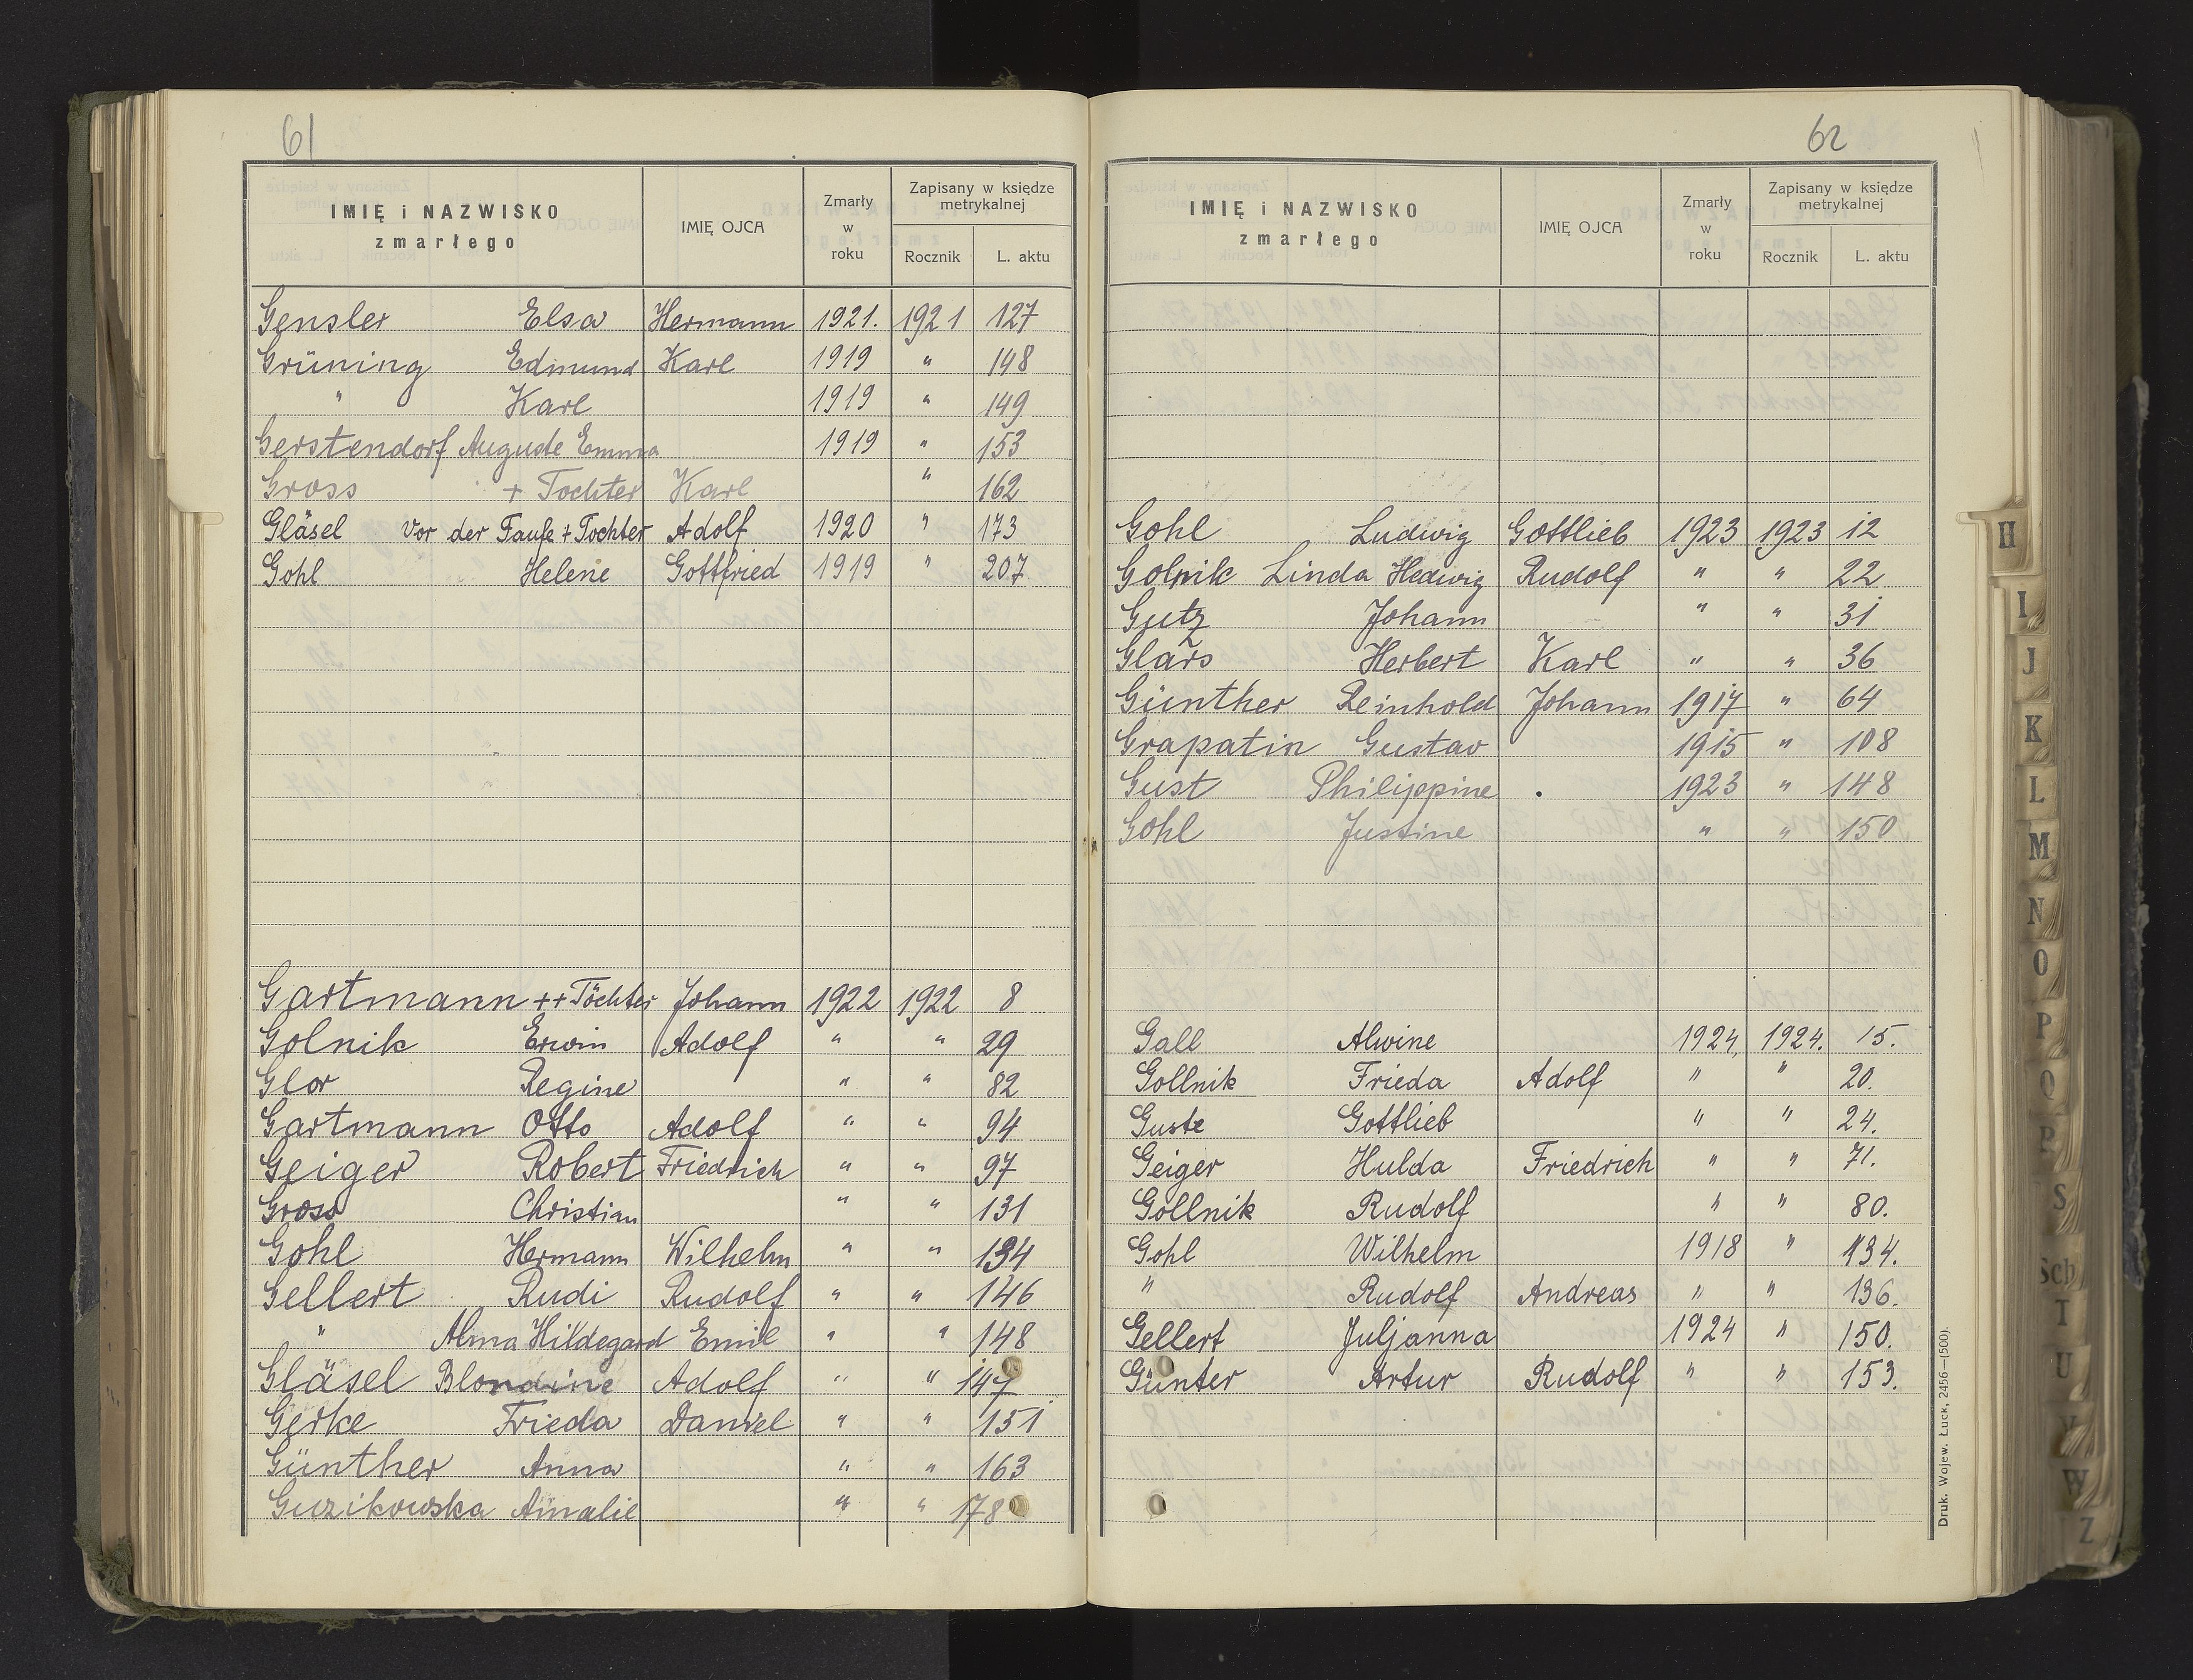 61
IMIĘ i NAZWISKO zmarłego IMIĘ OJCA Zmarły w roku Zapisany w księdze metrykalnej Rocznik L. aktu
Gensler Elsa Hermann 1921. 1921 127
Grüning Edmund Karl 1919 " 148
" Karl 1919 " 149
Gerstendorf Auguste Emma 1919 " 153
Gross + Tochter Karl " 162
Gläsel vor der Taufe + Tochter Adolf 1920 " 173
Gohl Helene Gottfried 1919 " 207
Gartmann ++ Töchter Johann 1922 1922 8
Golnik Erwin Adolf " " 29
Glor Regine " " 82
Gartmann Otto Adolf " " 94
Geiger Robert Friedrich " " 97
Gross Christian " " 131
Gohl Hermann Wilhelm " " 134
Gellert Rudi Rudolf " " 146
" Alma Hildegard Emil " " 148
Gläsel Blondine Adolf " " 147
Gerke Frieda Daniel " " 151
Günther Anna " " 163
Guzikowska Amalie " " 178
62
IMIĘ i NAZWISKO zmarłego IMIĘ OJCA Zmarły w roku Zapisany w księdze metrykalnej Rocznik L. aktu
Gohl Ludwig Gottlieb 1923 1923 12
Golnik Linda Hedwig Rudolf " " 22
Gutz Johann " " 31
Glars Herbert Karl " " 36
Günther Reinhold Johann 1917 " 64
Grapatin Gustav 1915 " 108
Gust Philippine . 1923 " 148
Gohl Justine " " 150
Gall Alwine 1924, 1924. 15.
Gollnik Frieda Adolf " " 20.
Guste Gottlieb " " 24.
Geiger Hulda Friedrich " " 71.
Gollnik Rudolf " " 80.
Gohl Wilhelm 1918 " 134.
" Rudolf Andreas " " 136.
Gellert Juljanna 1924 " 150.
Günter Artur Rudolf " " 153.
Druk. Wojew. Łuck, 2456—(500).
H
I
J
K
L
M
N
O
P
Q
R
S
Sch
T
U
V
W
Z